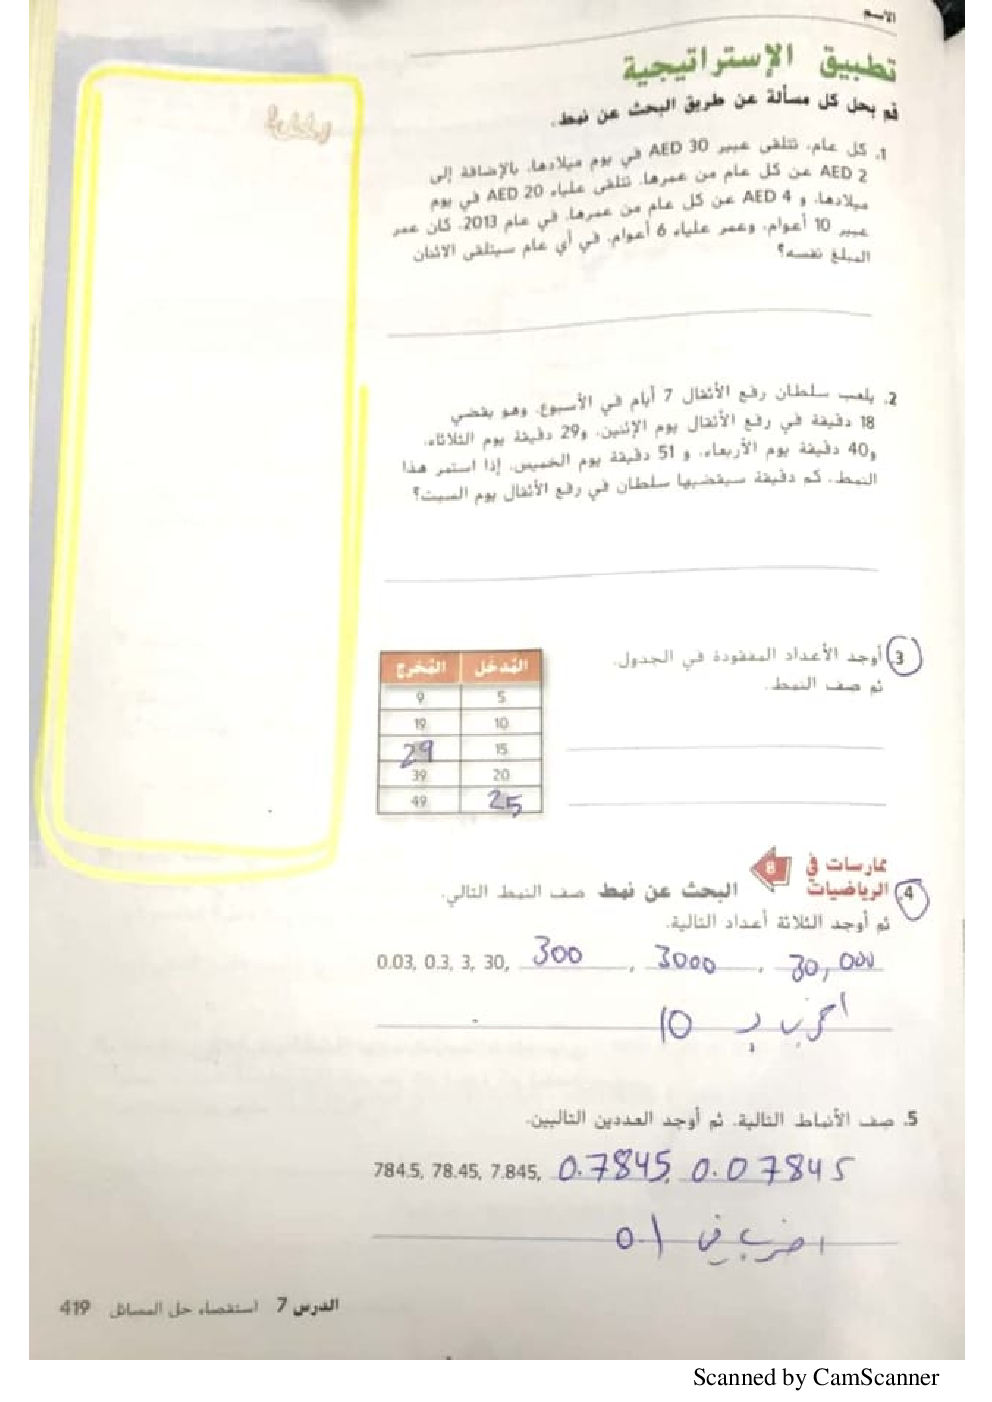 الاسم
تطبيق الإستراتيجية
قم بحل كل مسألة عن طريق البحث عن نمط.
1. كل عام، تتلقى عبير AED 30 في يوم ميلادها، بالإضافة إلى
AED 2 عن كل عام من عمرها. تتلقى علياء AED 20 في يوم
ميلادها، و AED 4 عن كل عام من عمرها. في عام 2013، كان عمر
عبير 10 أعوام، وعمر علياء 6 أعوام. في أي عام سيتلقى الاثنان
المبلغ نفسه؟
2. يلعب سلطان رفع الأثقال 7 أيام في الأسبوع. وهو يقضي
18 دقيقة في رفع الأثقال يوم الإثنين، و29 دقيقة يوم الثلاثاء،
و40 دقيقة يوم الأربعاء، و 51 دقيقة يوم الخميس. إذا استمر هذا
النمط، كم دقيقة سيقضيها سلطان في رفع الأثقال يوم السبت؟
3. أوجد الأعداد المفقودة في الجدول.
ثم صف النمط.
المُدخَل المُخرج
5 9
10 19
15 29
20 39
25 49
ممارسات في
الرياضيات 8
4. البحث عن نمط صف النمط التالي.
ثم أوجد الثلاثة أعداد التالية.
0.03, 0.3, 3, 30, 300, 3000, 30,000
اضرب بـ 10
5. صف الأنماط التالية. ثم أوجد العددين التاليين.
784.5, 78.45, 7.845, 0.7845, 0.07845
اضرب في 0.1
الدرس 7 استقصاء حل المسائل 419
Scanned by CamScanner